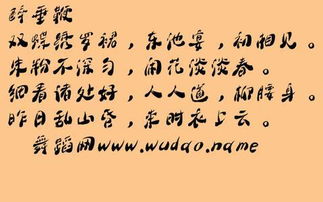 醉垂鞭
双蝶绣罗裙，东池宴，初相见。
朱粉不深匀，闲花淡淡春。
细看诸处好，人人道，柳腰身。
昨日乱山昏，来时衣上云。
舞蹈网www.wudao.name